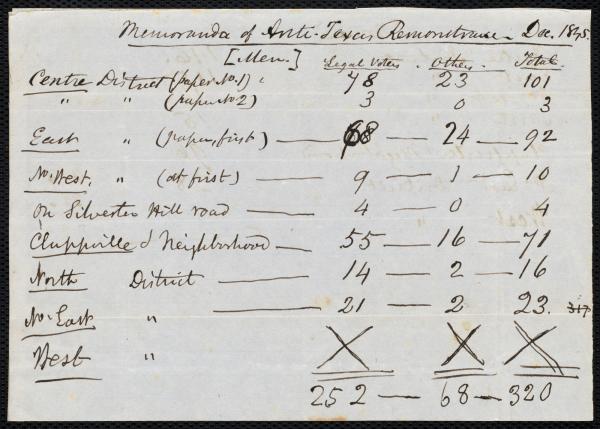 Memoranda of Anti-Texas Remonstrance Dec. 1845.
[Men.] Legal Voters. Others. Total.
Centre District (paper No. 1) 78 23 101
" " (paper No 2) 3 0 3
East " (paper, first) — 68 — 24 — 92
No. West, " (at first) — 9 — 1 — 10
On Silvester Hill road — 4 — 0 4
Cluppville & Neighborhood — 55 — 16 — 71
North District — 14 — 2 — 16
No. East " — 21 — 2 23. 317
West " X X X
252 — 68 — 320